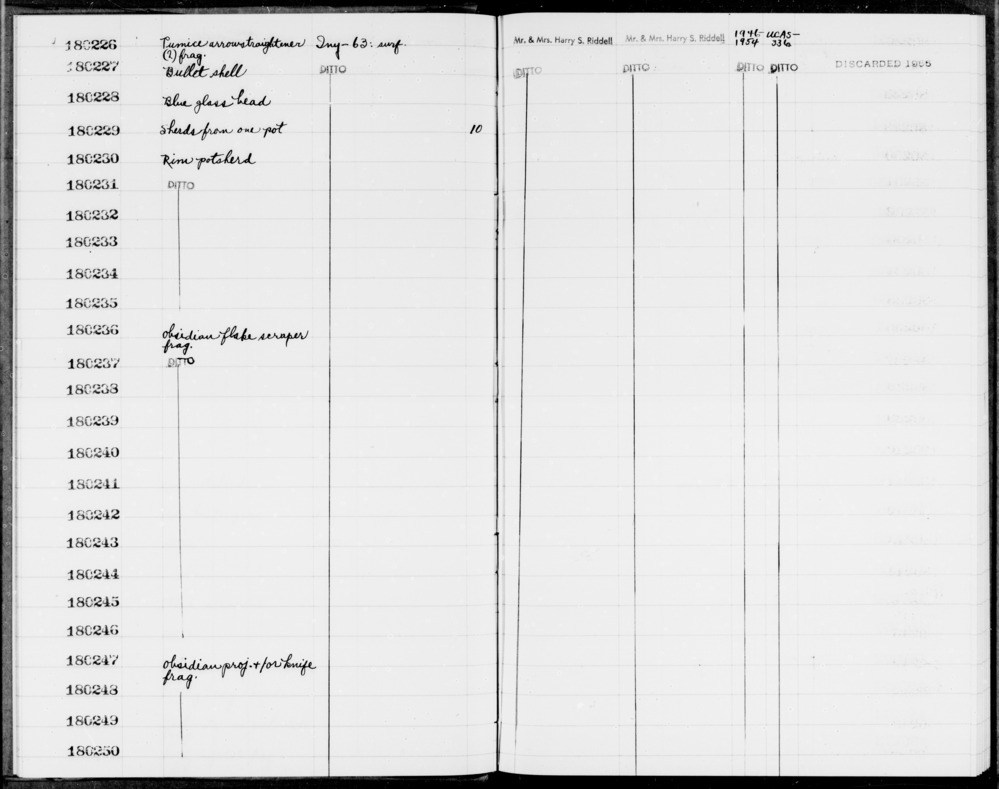 180226 Pumice arrowstraightener Iny-63: surf. Mr. & Mrs. Harry S. Riddell Mr. & Mrs. Harry S. Riddell 1946- UCAS-
(?) frag. 1954 336
180227 Bullet shell DITTO DITTO DITTO DITTO DITTO DISCARDED 1955
180228 Blue glass bead
180229 Sherds from one pot 10
180230 Rim potsherd
180231 DITTO
180232
180233
180234
180235
180236 obsidian flake scraper
frag.
180237 DITTO
180238
180239
180240
180241
180242
180243
180244
180245
180246
180247 obsidian proj. +/or knife
frag.
180248
180249
180250